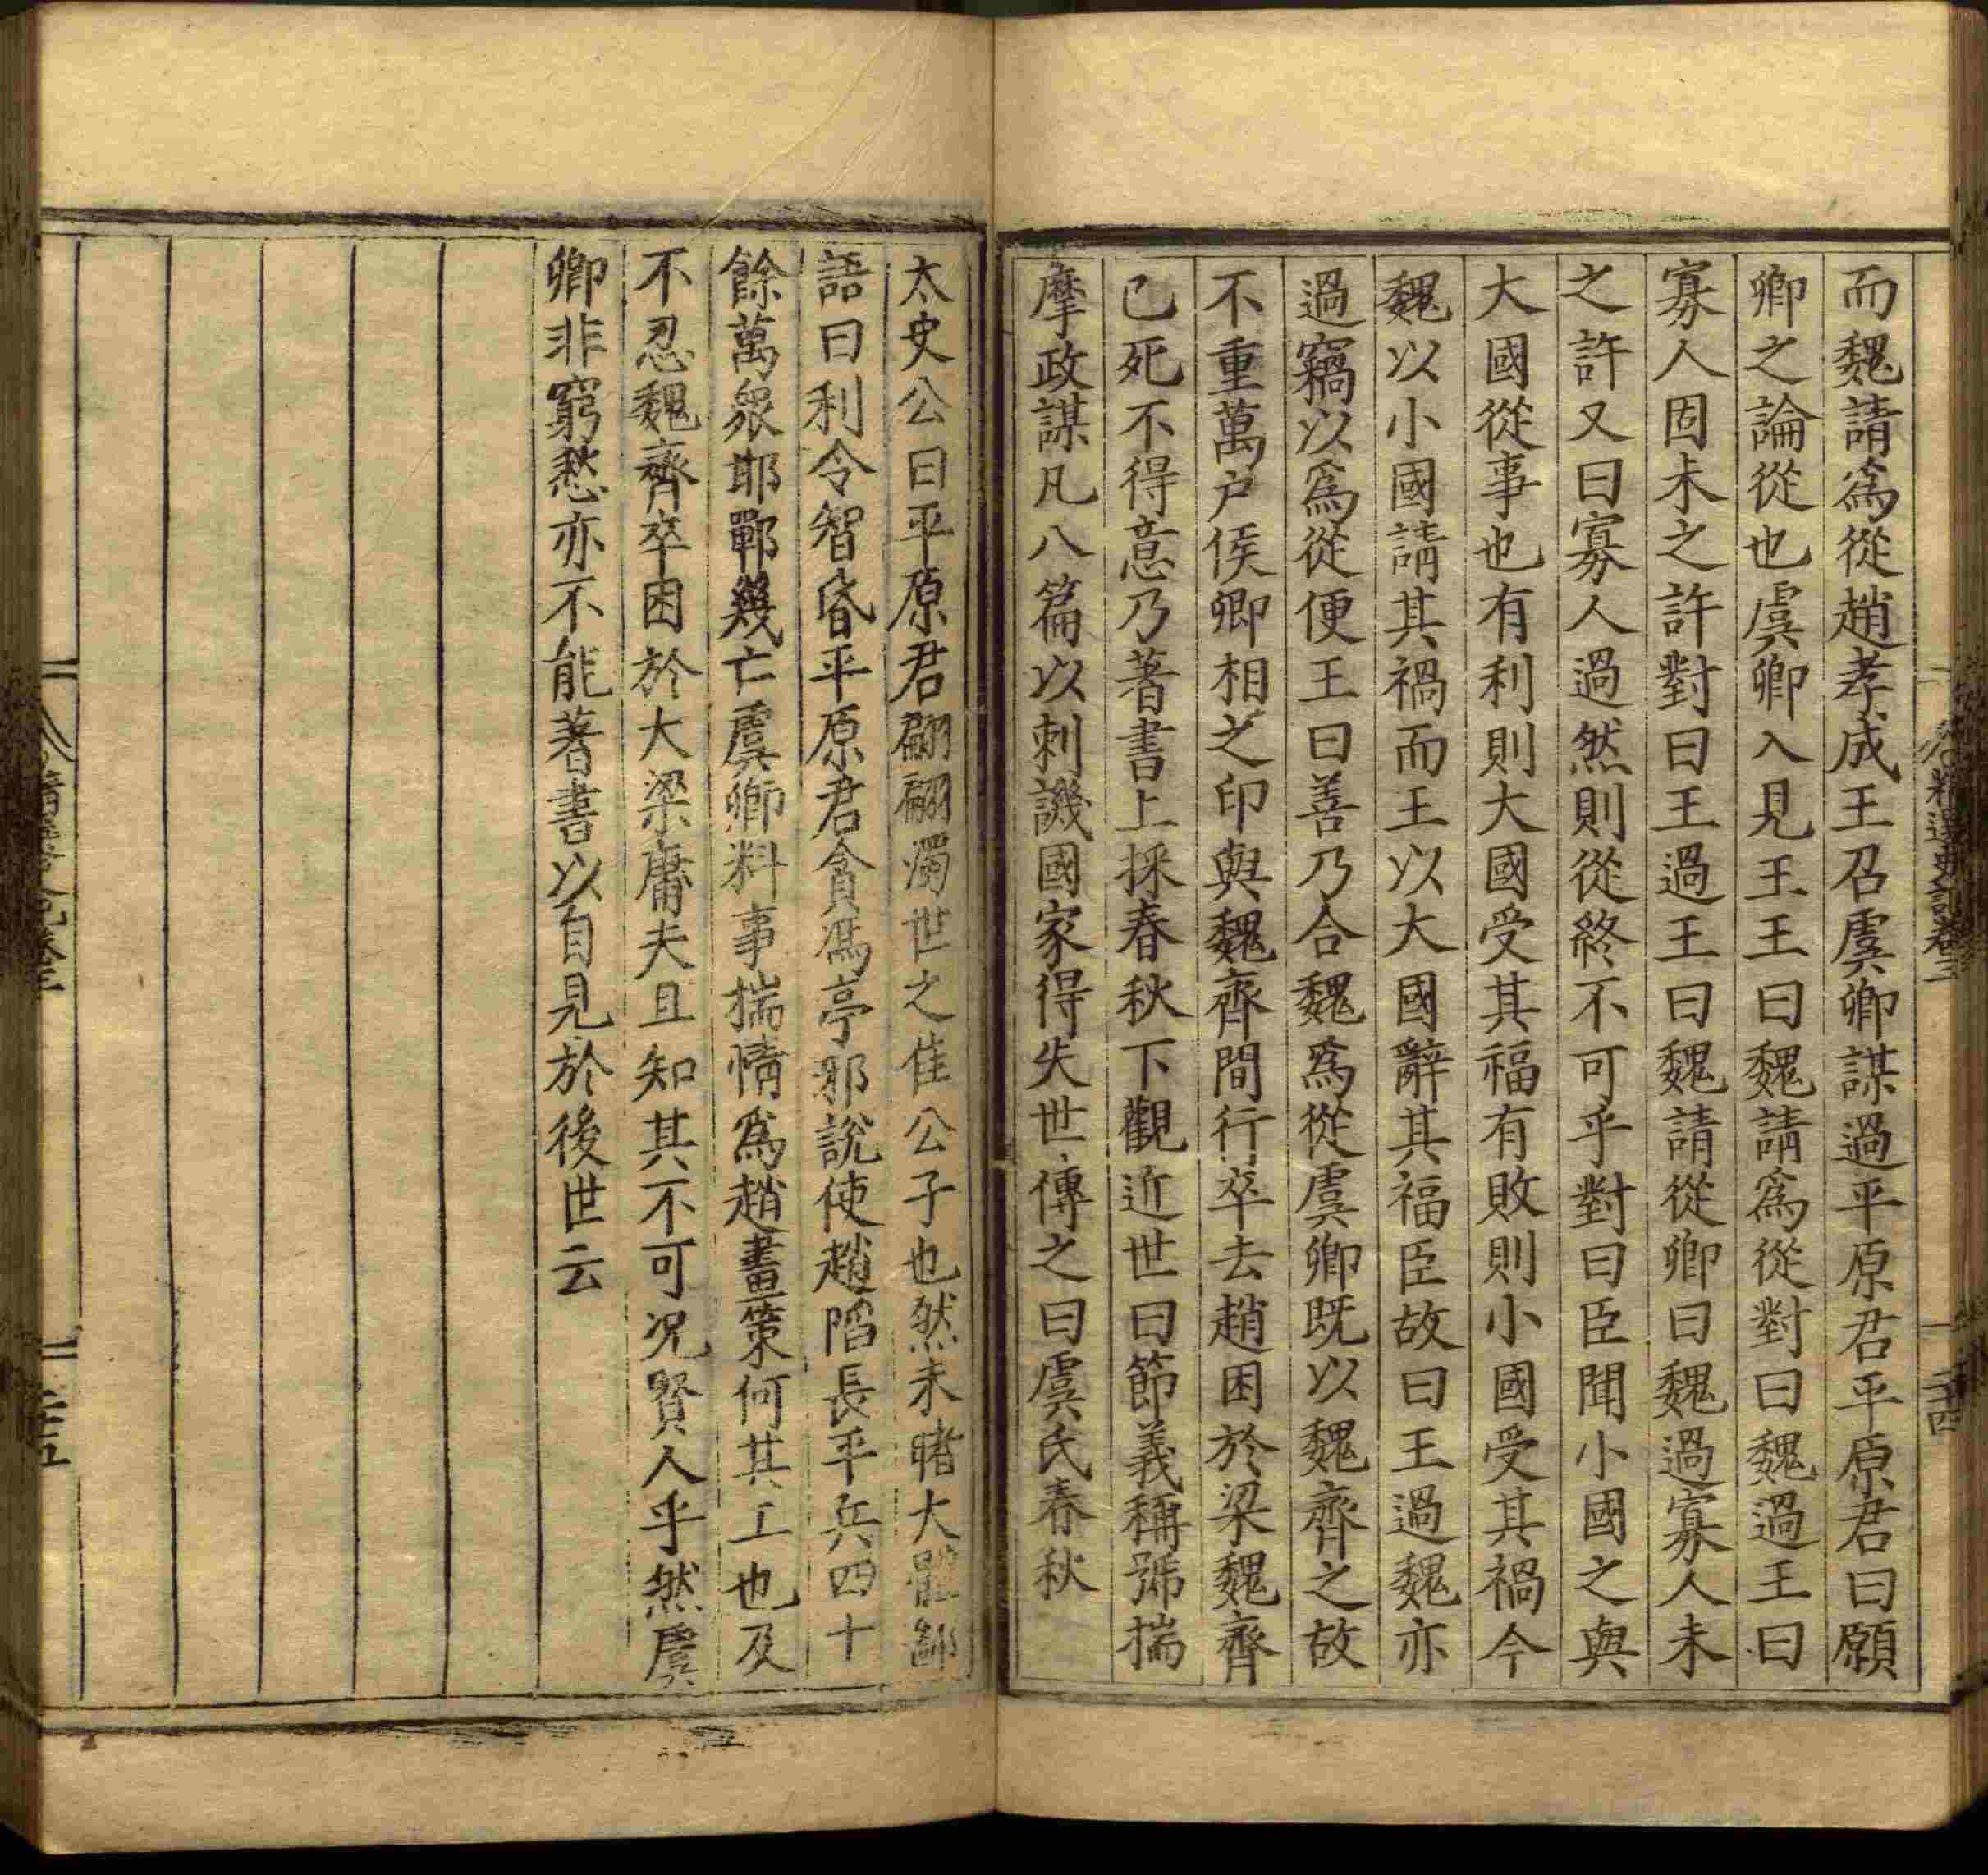 而魏請爲從趙孝成王召虞卿謀過平原君平原君曰願
卿之論從也虞卿入見王王曰魏請爲從對曰魏過王曰
寡人固未之許對曰王過王曰魏請從卿曰魏過寡人未
之許又曰寡人過然則從終不可乎對曰臣聞小國之與
大國從事也有利則大國受其福有敗則小國受其禍今
魏以小國請其禍而王以大國辭其福臣故曰王過魏亦
過竊以爲從便王曰善乃合魏爲從虞卿既以魏齊之故
不重萬戶侯卿相之印與魏齊間行卒去趙困於梁魏齊
已死不得意乃著書上採春秋下觀近世曰節義稱號揣
摩政謀凡八篇以刺譏國家得失世傳之曰虞氏春秋
太史公曰平原君翩翩濁世之佳公子也然未睹大體鄙
語曰利令智昏平原君貪馮亭邪說使趙陷長平兵四十
餘萬衆邯鄲幾亡虞卿料事揣情爲趙畫策何其工也及
不忍魏齊卒困於大梁庸夫且知其不可况賢人乎然虞
卿非窮愁亦不能著書以自見於後世云